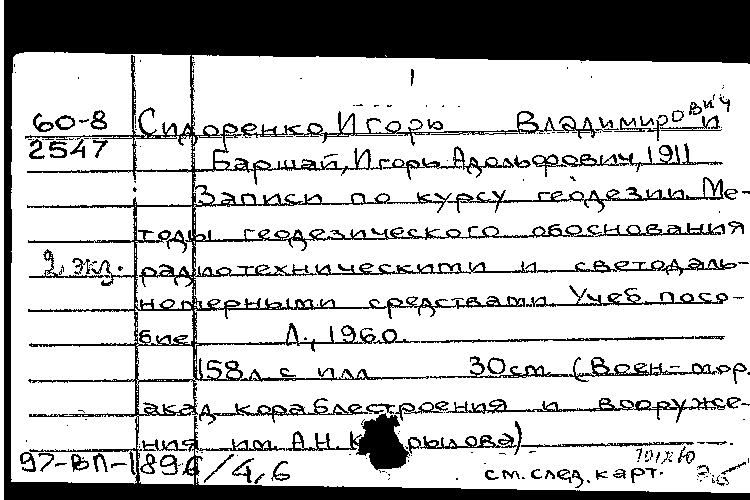 60-8 Сидоренко, Игорь Владимирович и
2547 Баршай, Игорь Адольфович, 1911
Записи по курсу геодезии. Ме-
тоды геодезического обоснования
2 экз. радиотехническими и светодаль-
номерными средствами. Учеб. посо-
бие. Л., 1960.
158 л. с илл. 30 см. (Воен.-мор.
акад. кораблестроения и вооруже-
ния им. А.Н. Крылова)
97-ВП-1896/4,6 см. след. карт.